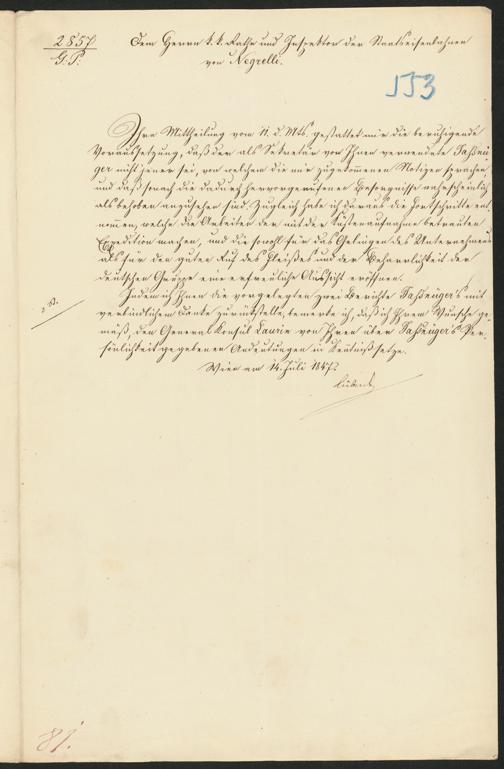 2857
G. P.
Dem Herrn k. k. Rathe und Inspektor der Staatseisenbahnen
von Negrelli.
553
Ihre Mittheilung vom 11. d. Mts. gestattet mir die beruhigende
Voraussetzung, daß der als Sekretär von Ihnen verwendete Taßnei-
ger nicht jener sei, von welchem die mir zugekommenen Notizen sprachen,
und daß sonach die dadurch hervorgerufenen Besorgnisse wahrscheinlich
als behoben anzusehen sind. Zugleich habe ich daraus die Fortschritte ent-
nommen, welche die Arbeiten der mit der Küstenaufnahme betrauten
Expedition machen, und die sowohl für das Gelingen des Unternehmens
als für den guten Ruf des Fleißes und der Beharrlichkeit der
deutschen Gruppe eine erfreuliche Aussicht eröffnen.
Indem ich Ihnen die vorgelegten zwei Berichte mit
verbindlichem Danke zurückstelle, bemerke ich, daß ich Ihrem Wunsche ge-
mäß, den General Konsul Laurin von Ihren über Per-
sönlichkeit gegebenen Andeutungen in Kenntniß setze.
Wien am 14. Juli 1847.
Kübeck
81.